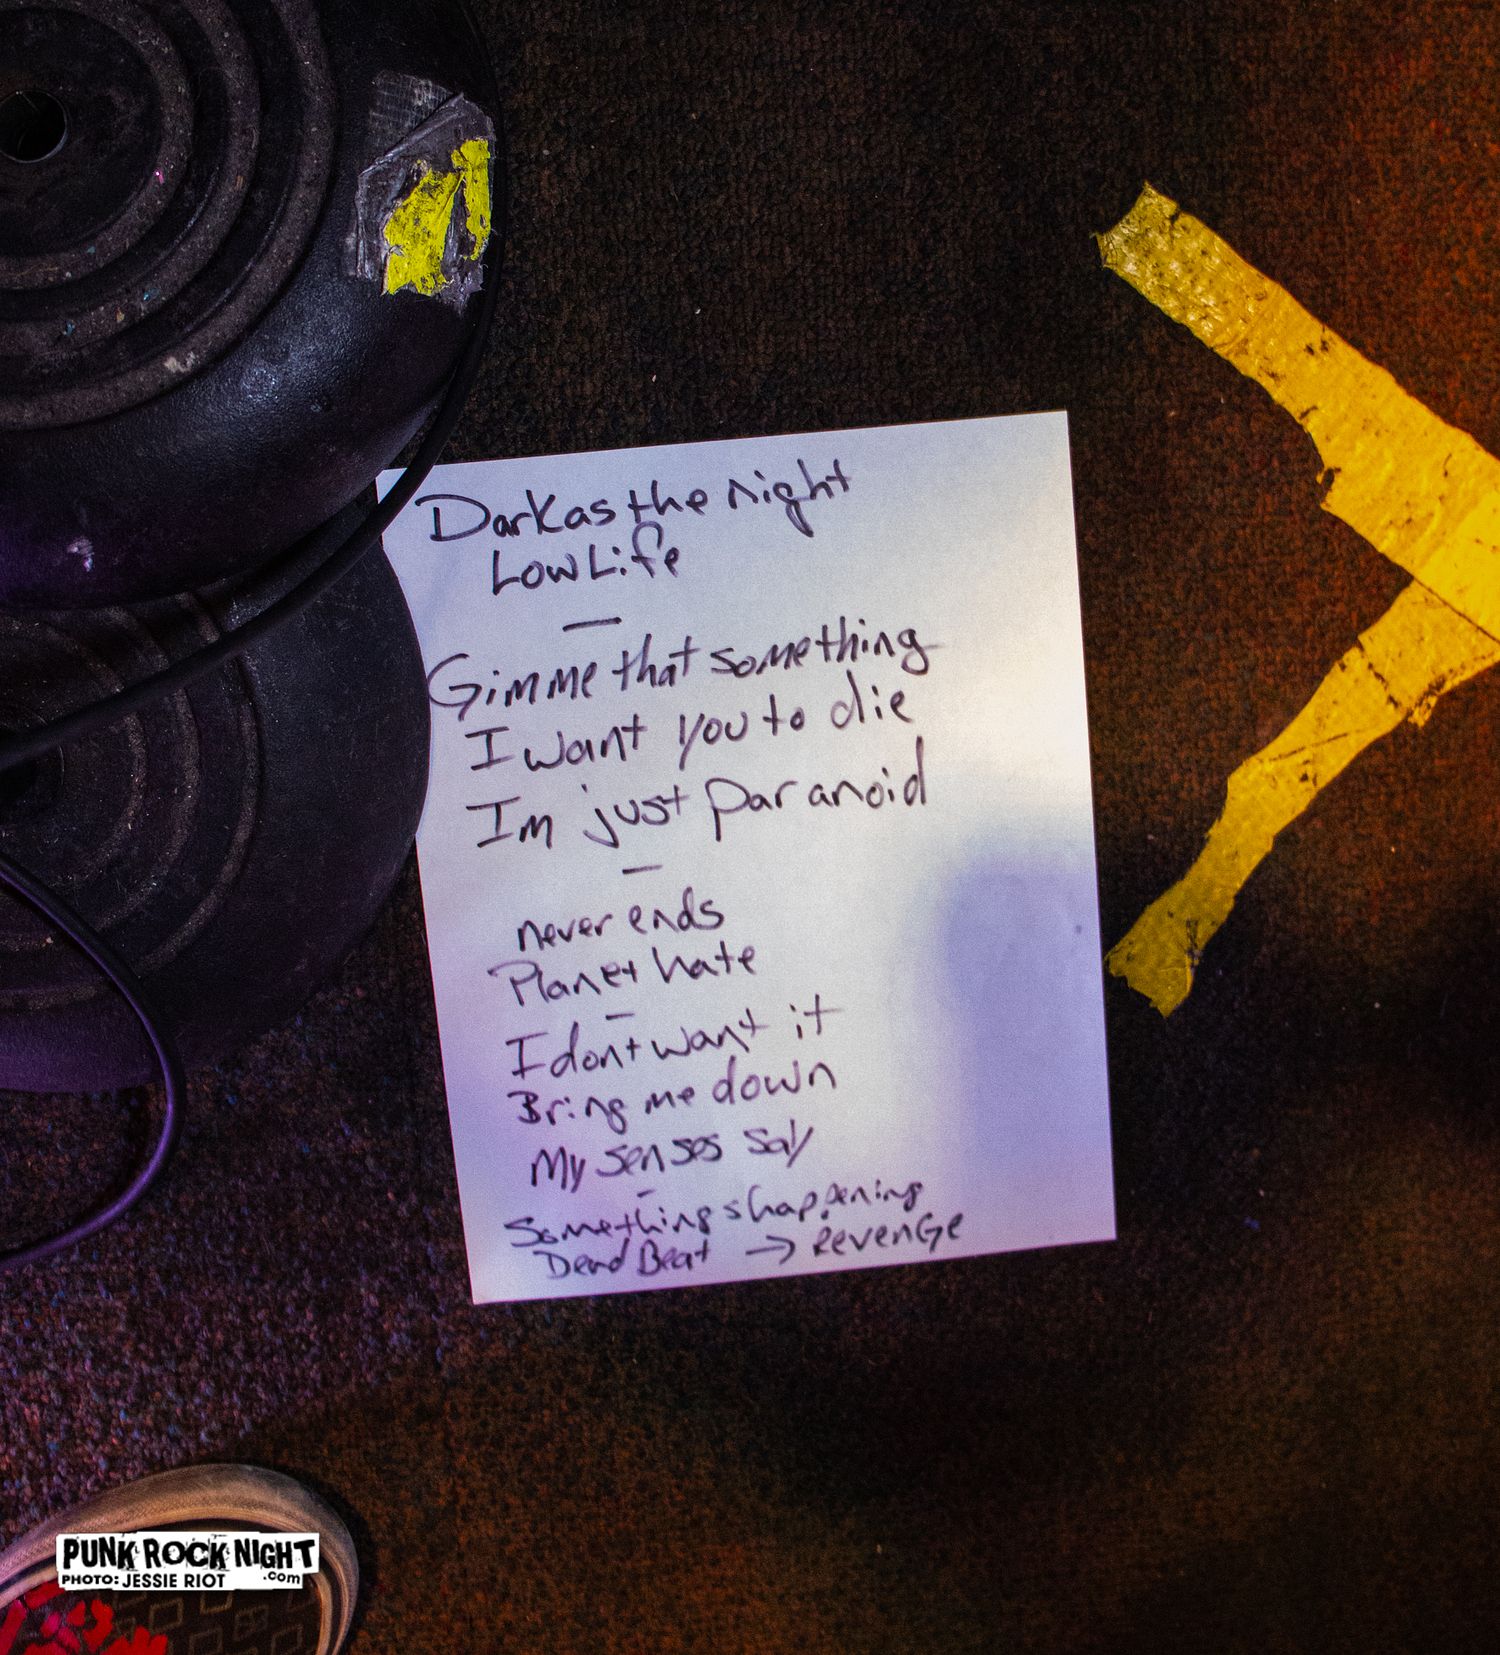 Dark as the night
Low Life
—
Gimme that something
I want you to die
Im just paranoid
—
never ends
Planet hate
—
I dont want it
Bring me down
My senses say
—
Somethings happening
Dead Beat → Revenge
PUNK ROCK NIGHT
PHOTO: JESSIE RIOT .com